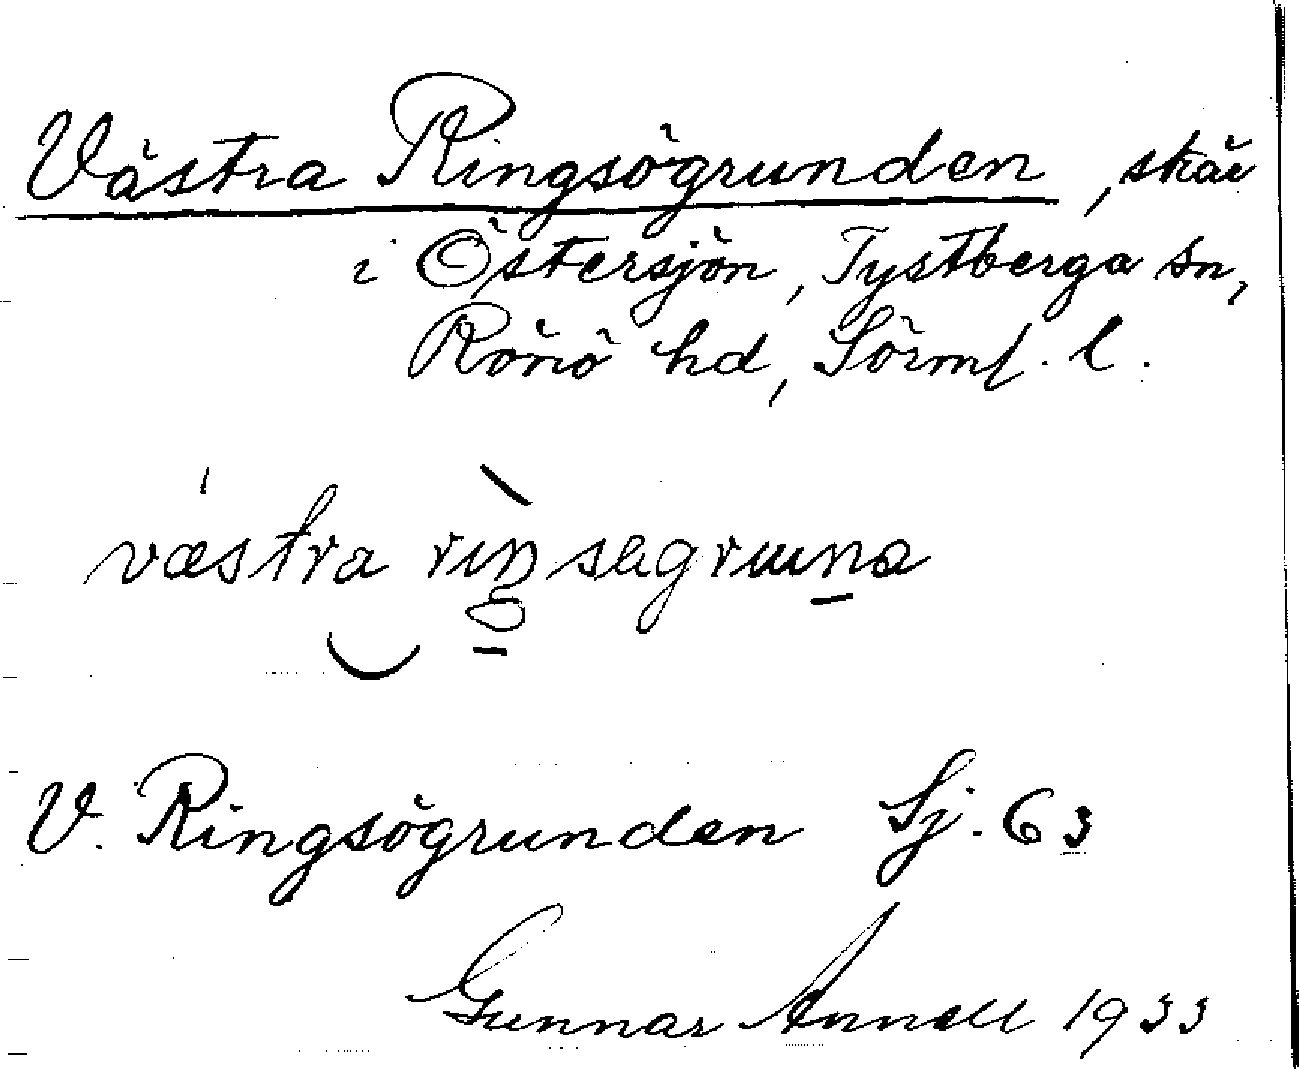 Västra Ringsögrunden, skär
i Östersjön, Tystberga sn,
Rönö hd, Sörml. l.
västra riŋsegruna
V. Ringsögrunden Sj. 63
Gunnar Annell 1933